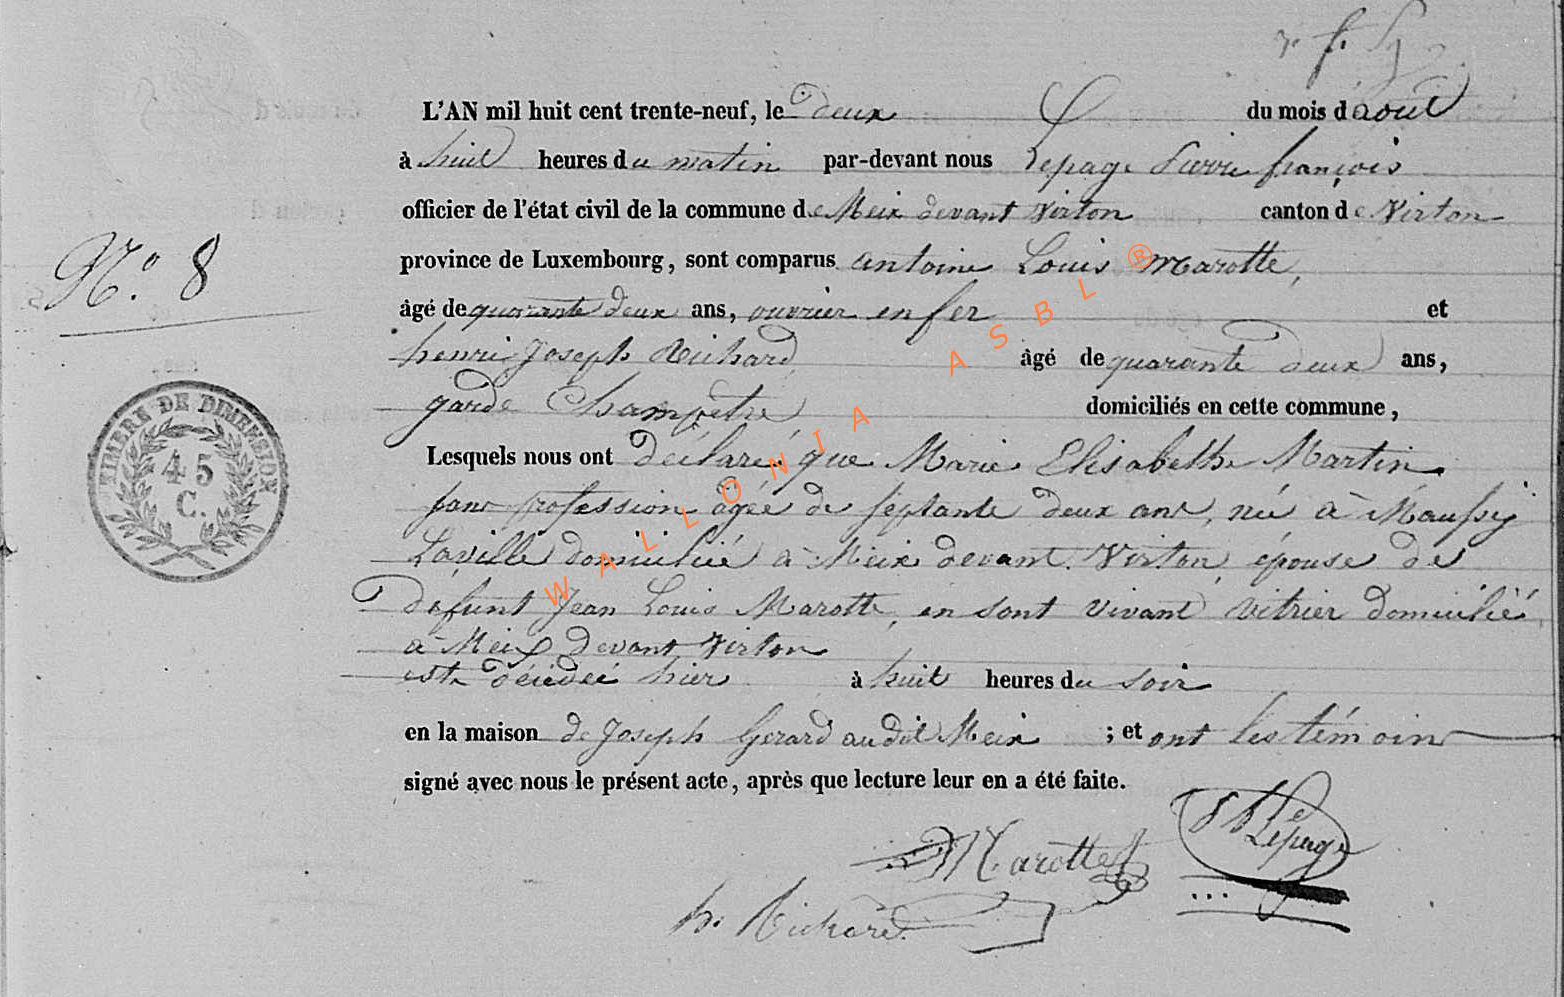 L'AN mil huit cent trente-neuf, le deux du mois d'aout
à huit heures du matin par-devant nous Lepage Pierre françois
officier de l'état civil de la commune de Meix devant Virton canton de Virton
province de Luxembourg, sont comparus antoine Louis Marotte,
âgé de quarante deux ans, ouvrier en fer et
henri Joseph Richard, âgé de quarante deux ans,
garde Champêtre domiciliés en cette commune,
Lesquels nous ont déclaré que Marie Elisabethe Martin
sans profession âgée de septante deux ans, née à
Laville domiciliée à Meix devant Virton, épouse de
défunt Jean Louis Marotte, en sont vivant vitrier domicilié
à Meix Devant Virton
est décédée hier à huit heures du soir
en la maison de Joseph Gerard audit Meix ; et ont les témoins
signé avec nous le présent acte, après que lecture leur en a été faite.
N.º 8
TIMBRE DE DIMENSION
45
C.
Lepage
Marotte
h. Richard
WALLONIA ASBL ®